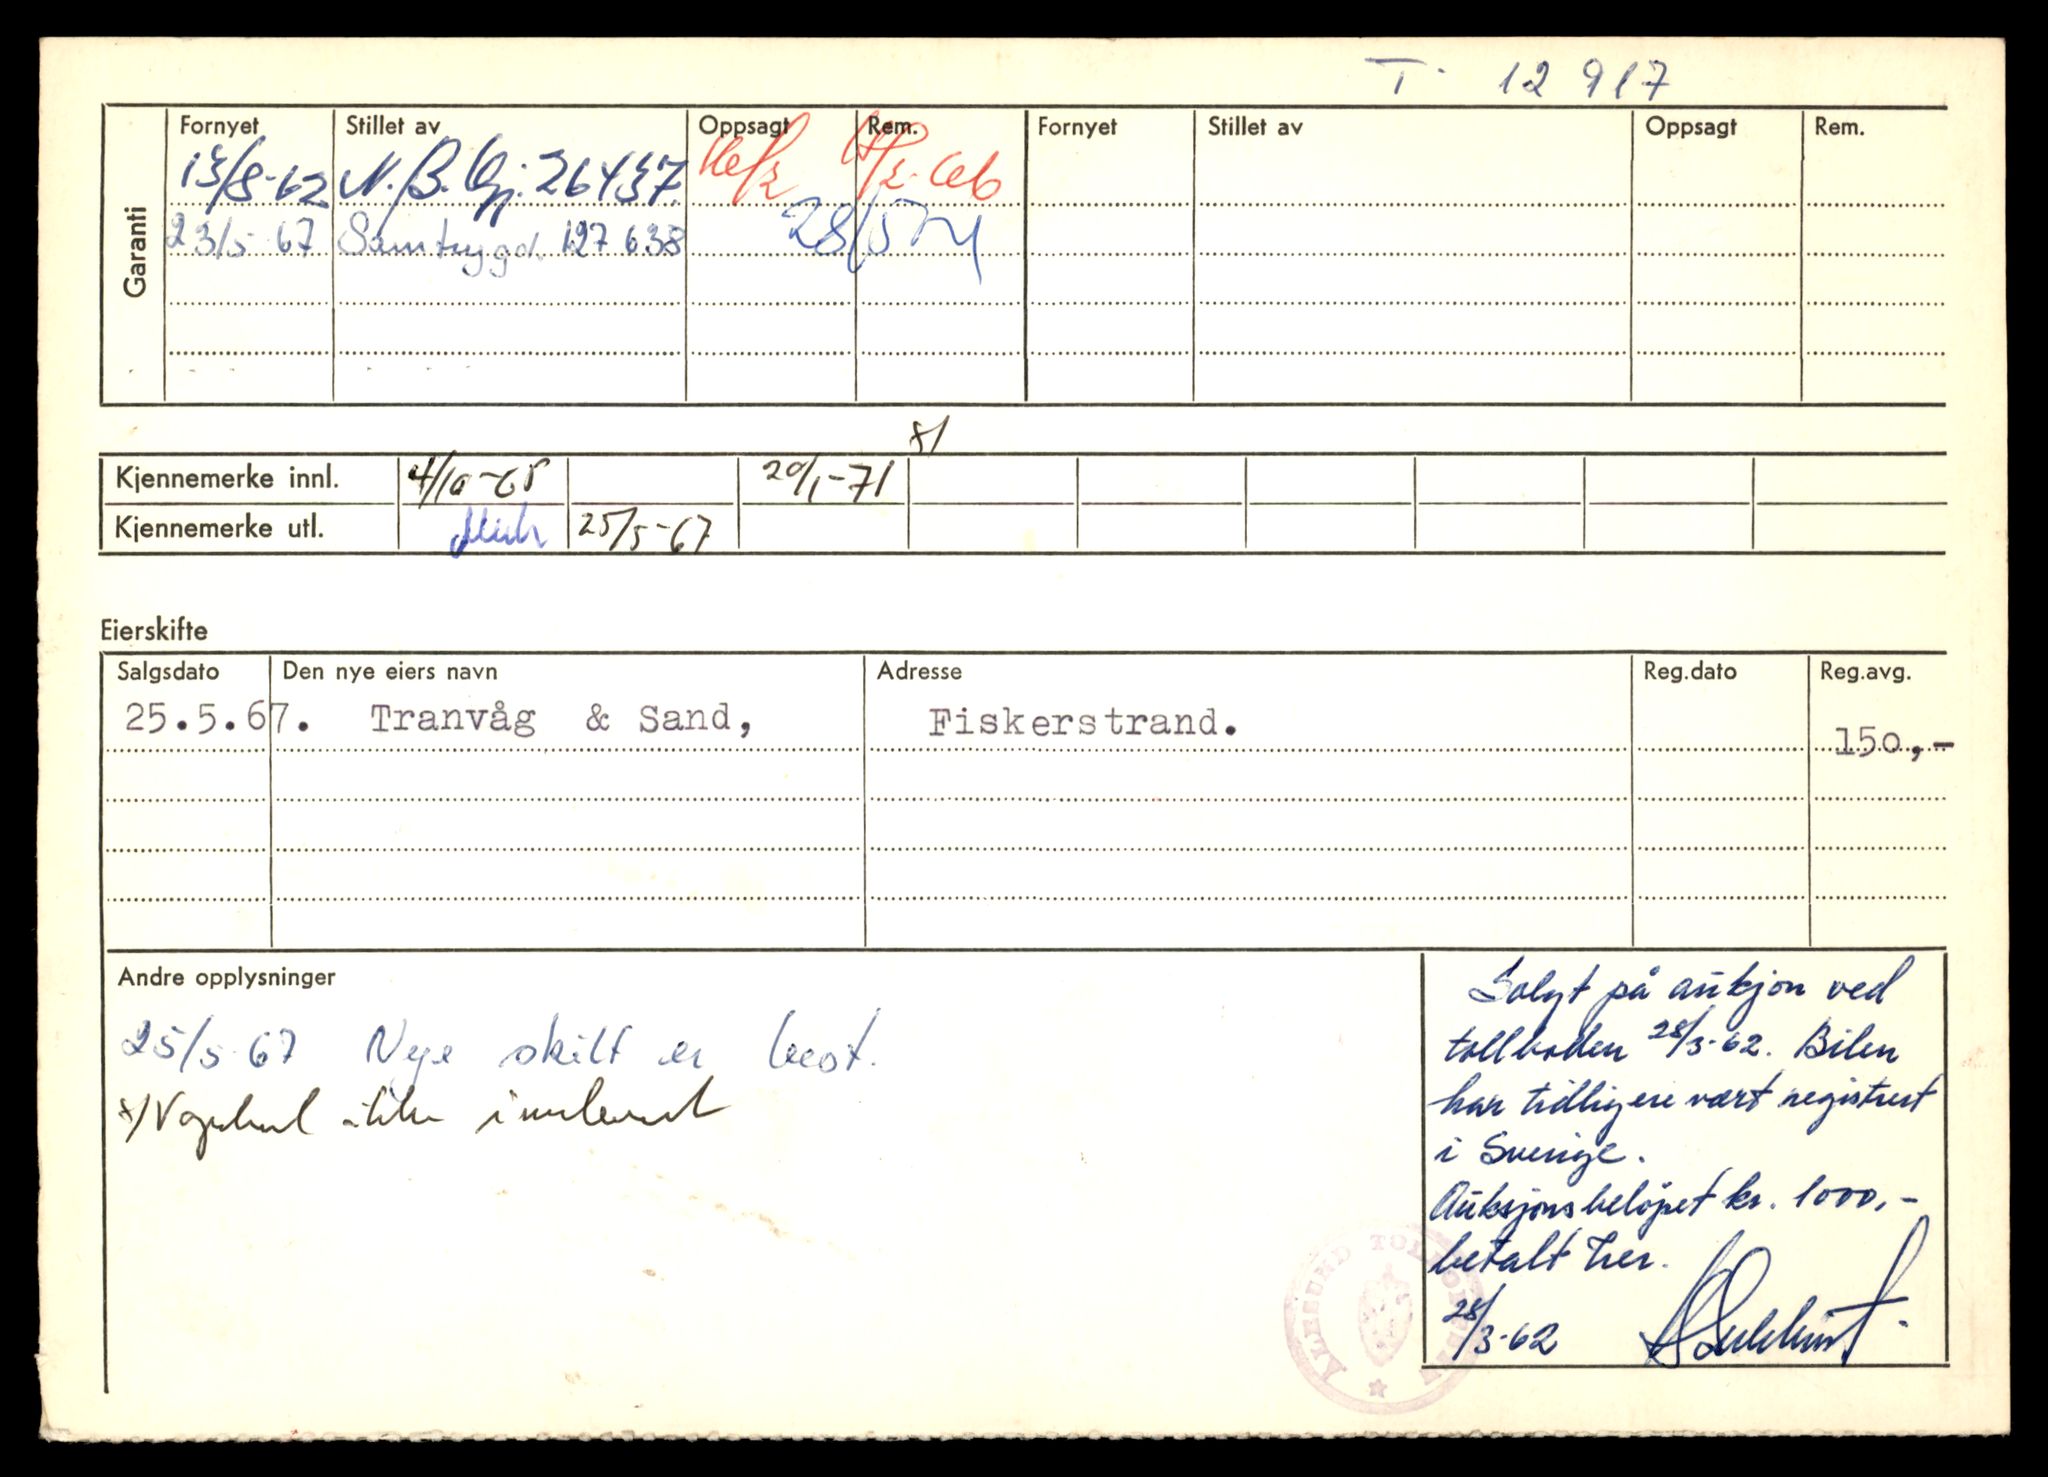 T- 12 917
Garanti
Fornyet Stillet av Oppsagt Rem. Fornyet Stillet av Oppsagt Rem.
13/8-62 N. B. Gj. 26437.
23/5-67 Samtrygd. 127 638 28/5
x/
Kjennemerke innl. 4/10-65 20/1-71
Kjennemerke utl. 25/5-67
Eierskifte
Salgsdato Den nye eiers navn Adresse Reg.dato Reg.avg.
25.5.67. Tranvåg & Sand, Fiskerstrand. 150,-
Andre opplysninger
25/5-67 Nye skilt er best.
x/ Vognkort ikke innlevert
Solgt på aukjon ved
tollboden 28/3-62. Bilen
har tidligere vært registrert
i Sverige.
Auksjonsbeløpet kr. 1000,-
betalt her.
28/3-62
ÅLESUND TOLLBOD